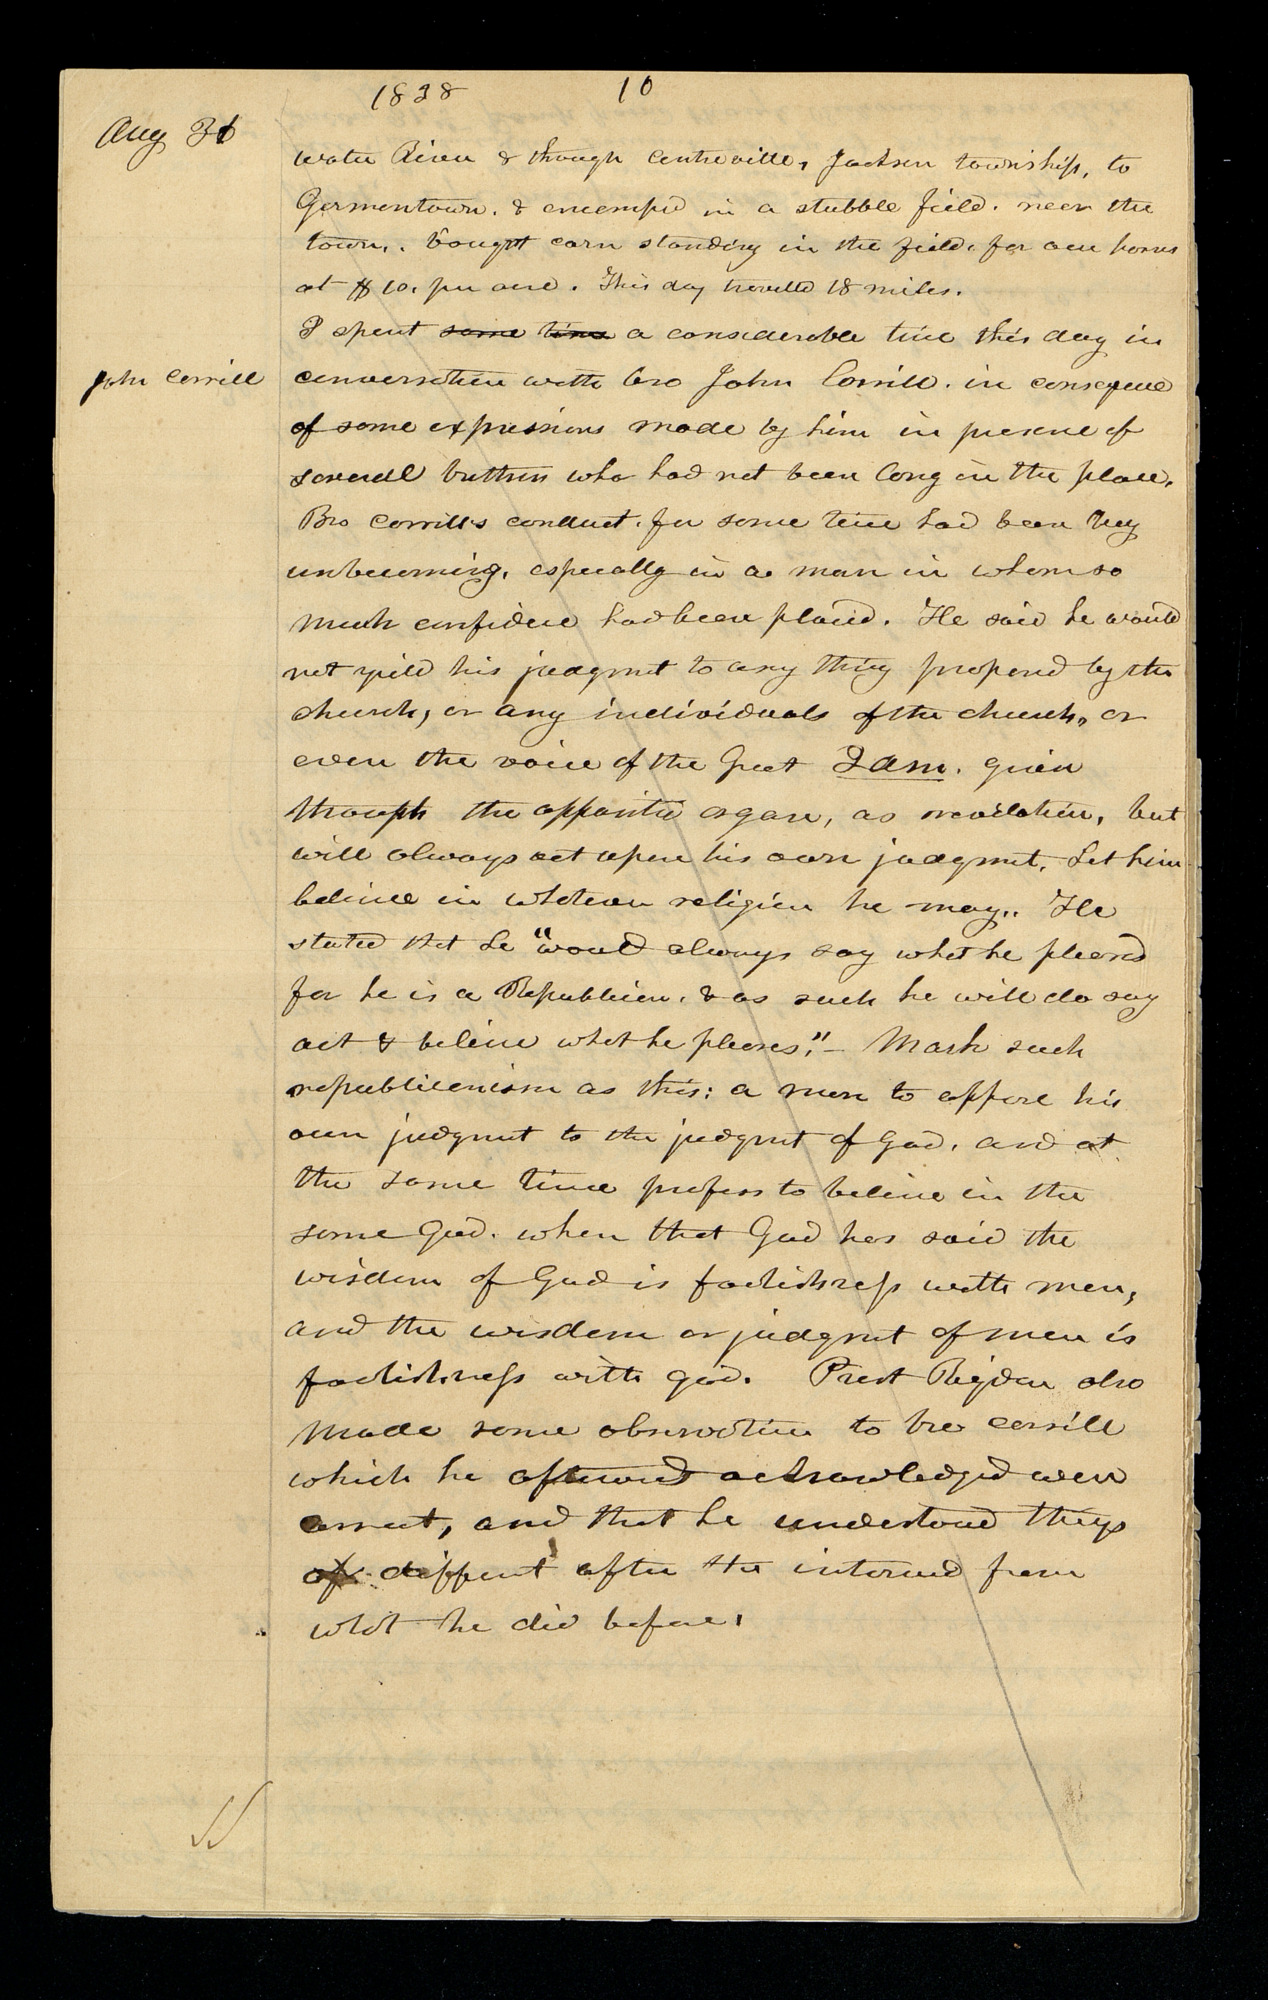 1838 10
Aug 31
water River & through Centreville, Jackson township, to
Germentown. & encamped in a stubble field. near the
town,. bought corn standing in the field, for our horses
at $10. per acre. This day travelled 18 miles.
I spent some time a considerable time this day in
John Corrill
conversation with bro John Corrill. in consequence
of some expressions made by him in presence of
severall brethren who had not been long in the place.
Bro Corrill's conduct. for some time had been very
unbecoming, especally in a man in whom so
much confidence had been placed. He said he would
not yield his judgment to any thing proposed by the
church, or any individuals of the church, or
even the voice of the Great I am. given
through the appointed organ, as revelation, but
will always act upon his own judgment, Let him
believe in whatever religion he may,. He
stated that he "would always say what he pleased
for he is a Republican. & as such he will do say
act & believe what he pleases."— Mark such
republicanism as this: a man to oppose his
own judgment to the judgment of God. and at
the same time profess to believe in the
same God. when that God has said the
wisdom of God is foolishness with men,
and the wisdom or judgment of men is
foolishness with god. Prest Rigdon also
made some observation to bro corrill
which he afterwards acknowledged were
correct, and that he understood things
of different after the interview from
what he did before.